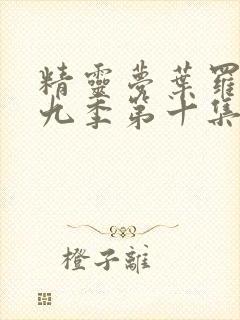 精靈夢葉羅
九季第十集
橙子離